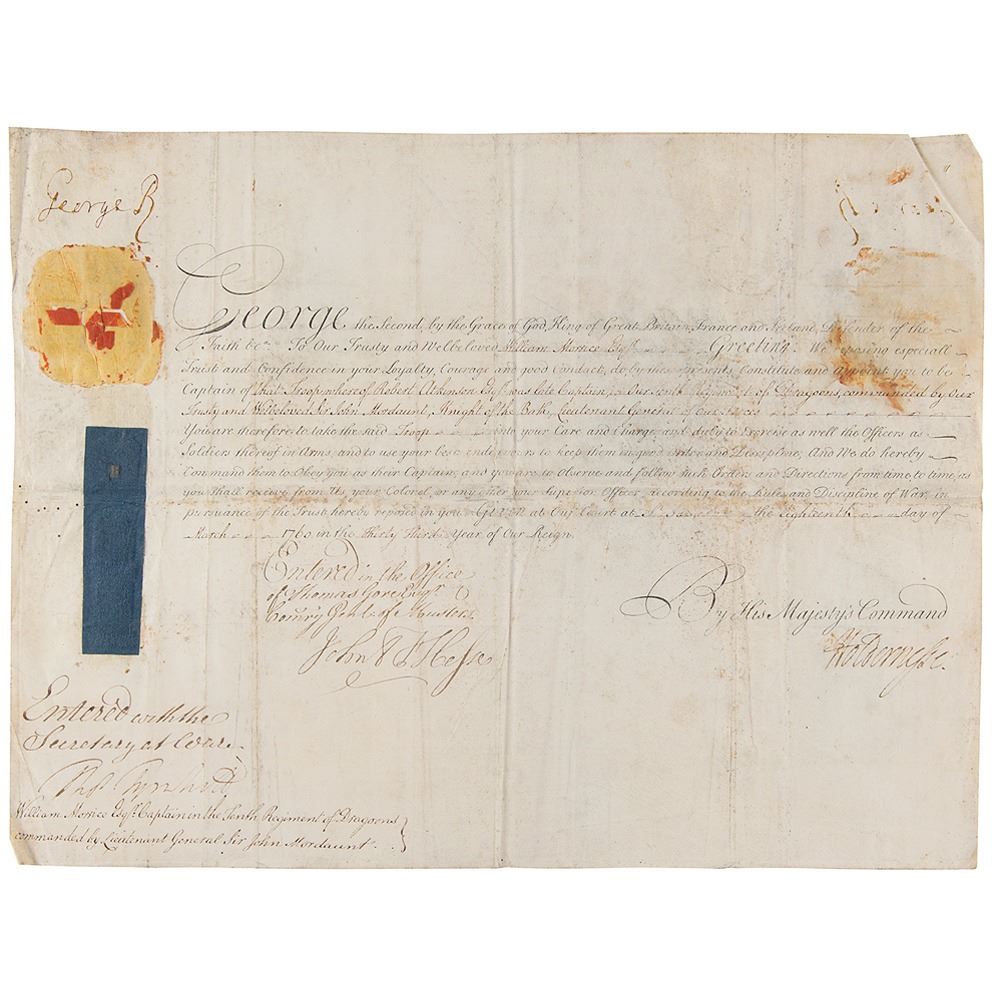 George R
George the Second, by the Grace of God, King of Great Britain, France and Ireland, Defender of the
Faith &c. To Our Trusty and Welbeloved William Morrice Esqr. Greeting. We reposing especiall
Trust and Confidence in your Loyalty, Courage and good Conduct, do by these presents Constitute and Appoint you to be
Captain of that Troop whereof Robert Atkinson Esqr. was late Captain, in Our Tenth Regiment of Dragoons, commanded by Our
Trusty and Welbeloved Sir John Mordaunt, Knight of the Bath, Lieutenant General of Our Forces
You are therefore to take the said Troop into your Care and Charge, and duly to Exercise as well the Officers as
Soldiers thereof in Arms, and to use your best endeavors to keep them in good Order and Discipline, And We do hereby
Command them to Obey you as their Captain, and you are to Observe and follow such Orders and Directions from time to time, as
you shall receive from Us, your Colonel, or any other your Superior Officer, according to the Rules and Discipline of War, in
pursuance of the Trust hereby reposed in you. Given at Our Court at the Eighteenth day of
March 1760 in the Thirty Third Year of Our Reign.
Entered in the Office
of Thomas Gore Esqr.
Comry. Genl. of Musters
John Hesse
By His Majesty's Command
Holdernesse
Entered with the
Secretary at War.
Thos. Tyrwhitt
William Morrice Esqr. Captain in the Tenth Regiment of Dragoons
commanded by Lieutenant General Sir John Mordaunt.